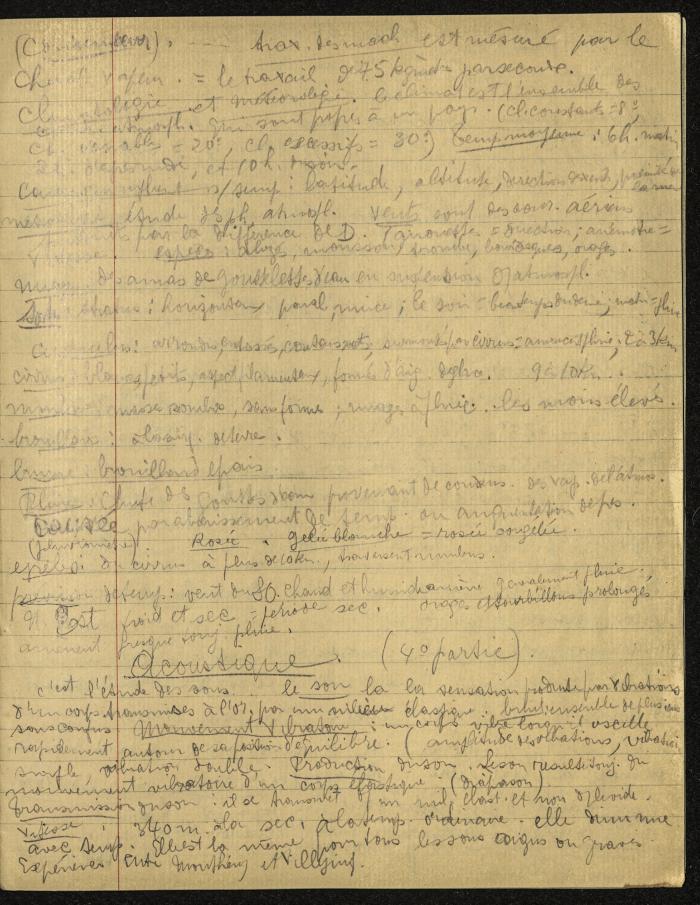 (Condenseur). --- trav. des mach est mesuré par le
cheval vapeur. = le travail de 75 kgmètres par seconde.
Climatologie et météorologie. Le climat est l'ensemble des
atmosph. qui sont propres à un pays. (cl. constants = 8°;
cl. variable = 20°, cl. excessifs = 30°) temp. moyenne : 6h. matin
2h. et 10h. du soir.
s/temp : latitude, altitude, direction des vents, proximité de la mer
étude des ph. atmosph. Vents sont des cour. aériens
par la différence de D. Girouettes = direction ; anémomètre =
vitesse espèces : alizés, mousson, trombe, bourrasques, orages.
nuages des amas de gouttelettes d'eau en suspension ds atmosph.
stratus : horizontaux, mince ; le soir = beau temps ; matin = pluie
Cumulus : arrondis, entassés, surmontés par cirrus = annonce pluie ; 2 à 3 km
cirrus : blancs, petits, aspect filamenteux, formés d'aig. de glace. 9 à 10 km.
nimbus : masse sombre, sans forme ; nuages à pluie. les moins élevés.
brouillons : de terre.
brume : brouillard épais.
Pluie : Chute de gouttes d'eau provenant de condens. des vap. de l'atmos.
Cause par abaissement de temp. ou augmentation de pres.
(pluviomètre) Rosée. gelée blanche = rosée congelée.
du cirrus à plus de 10 km, traversent nimbus.
prévision de temps : vent du SO. chaud et humide amène généralement pluie.
N. Est froid et sec = période sec. orages et tourbillons prolongés
amènent presque touj. pluie.
Acoustique. (4° partie).
c'est l'étude des sons. le son la sensation produite par vibrations
d'un corps transmises à l'or. par un milieu élastique. bruit ensemble de plusieurs
sons confus Mouvement vibratoire : un corps vibre lorsqu'il oscille
rapidement autour de sa position d'équilibre. (amplitude des vibrations, vibration
simple, vibration double. Production du son. Le son résulte touj. du
mouvement vibratoire d'un corps élastique. (diapason)
transmission du son : il se transmet ds un mil. élast. et non ds le vide.
Vitesse : 340 m. à la sec. à la temp. ordinaire. elle diminue
avec temp. Elle est la même pour tous les sons aigus ou graves
Expériences entre Montlhéry et Villejuif.